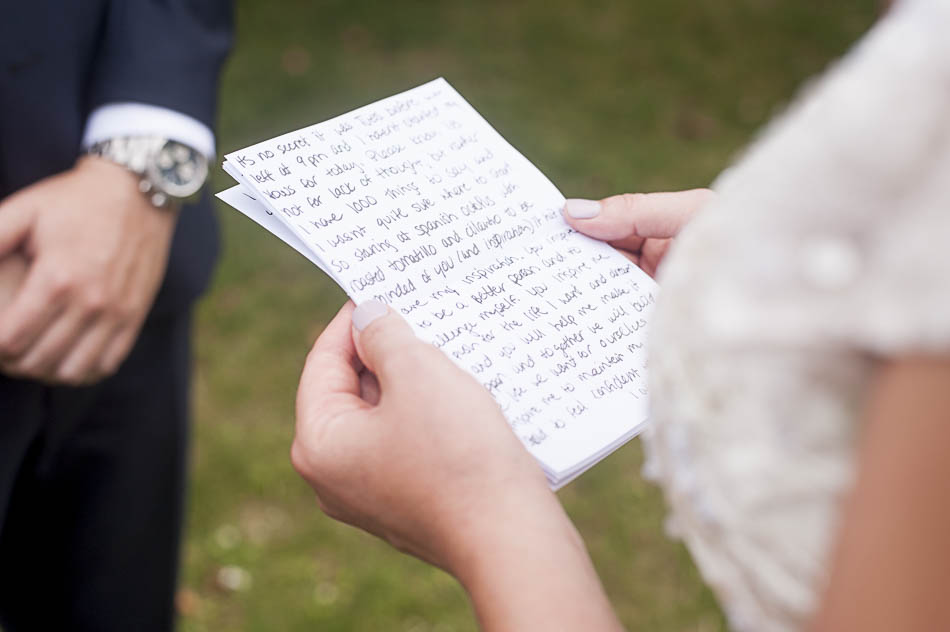 its no secret it was Tues before
left at 9pm and I haven't started my
vows for today. Please know its
not for lack of thought, but rather
I have 1000 things to say and
I wasn't quite sure where to start
so staring at spanish
roasted tomatillo and cilantro to be
minded of you (and inspiration) it
are my inspiration. You
to be a better person and to
allenge myself. You inspire me
for the life I want and dream
and you will help me make it
open and to gether we will
we want for ourselves
me to maintain my
and to feel confident